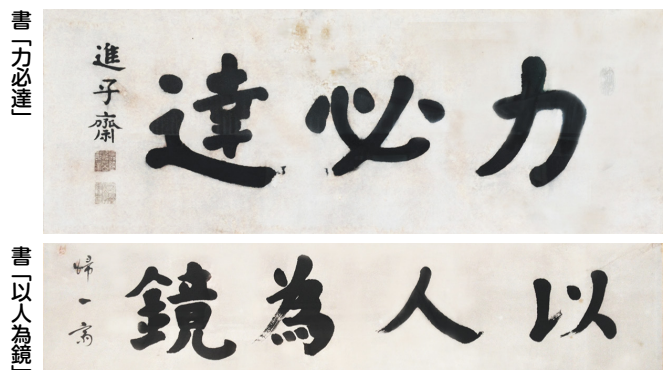 書「力必達」
力必達
進乎齋
書「以人為鏡」
以人為鏡
帰一斎